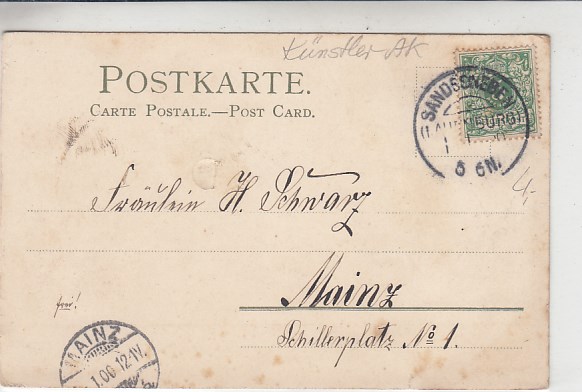 Künstler-AK
POSTKARTE.
CARTE POSTALE.—POST CARD.
SANDESNEBEN
(LAUENBURG)
6 6N.
4,-
Fräulein H. Schwarz
Mainz
frei!
Schillerplatz No 1.
MAINZ
1.00 12-1V.